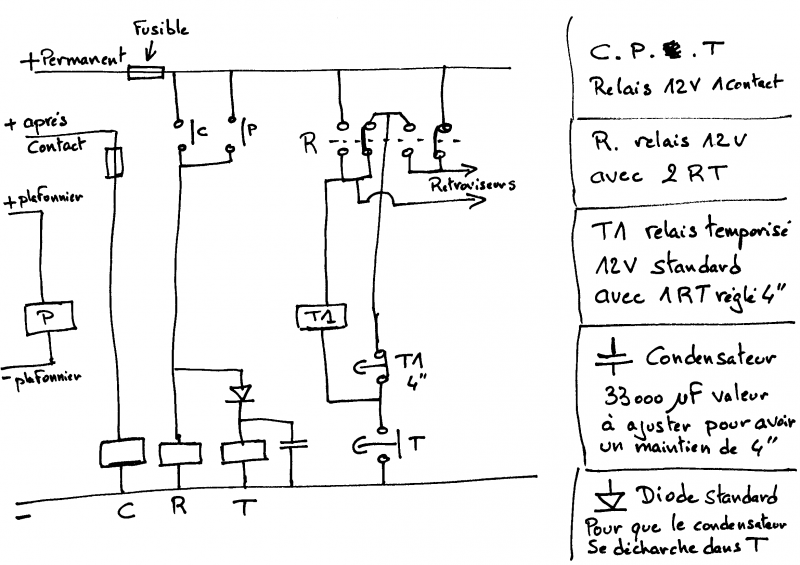 Fusible
+ Permanent
+ après
Contact
+ plafonnier
P
- plafonnier
C
P
R
Retroviseurs
T1
T1
4"
T
-
C
R
T
C. P. . T
Relais 12V 1 contact
R. relais 12V
avec 2 RT
T1 relais temporisé
12V standard
avec 1 RT réglé 4"
Condensateur
33000 µF valeur
à ajuster pour avoir
un maintien de 4"
Diode standard
Pour que le condensateur
Se décharche dans T